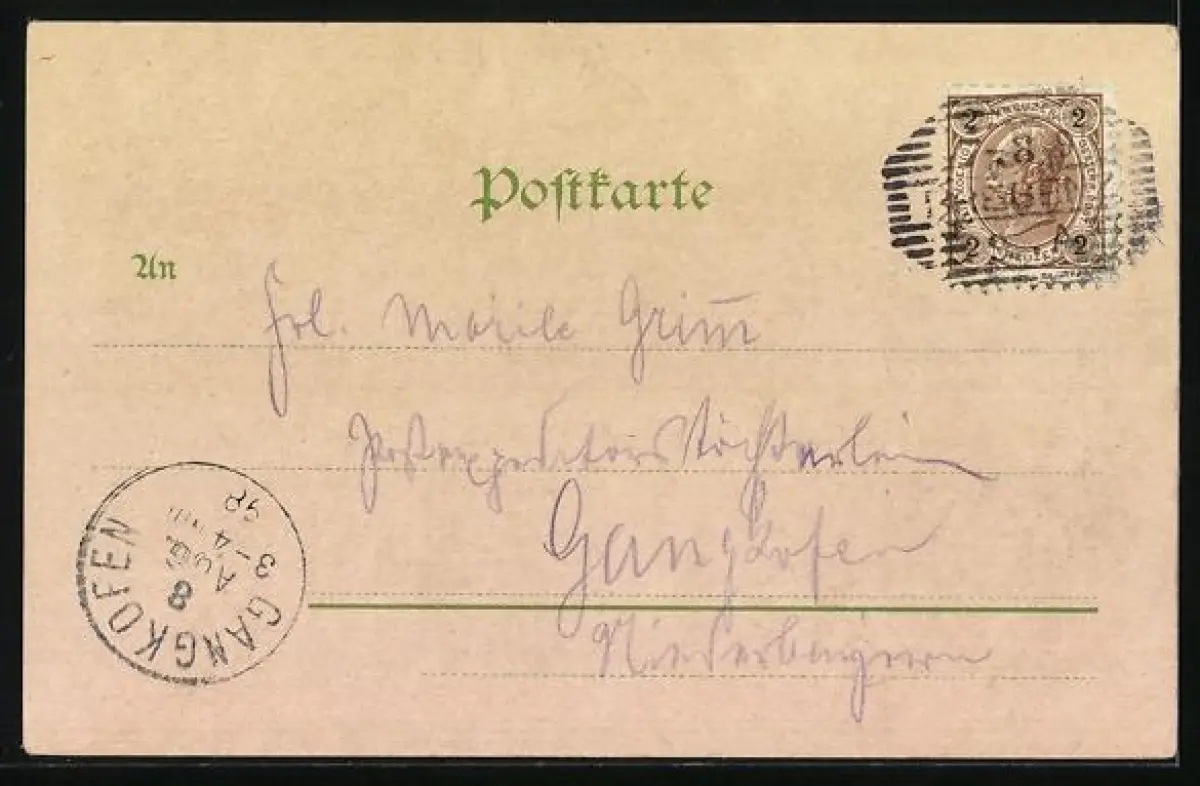 Postkarte
An
Frl. Marile Grimm
Postexpeditorstöchterlein
Gangkofen
Niederbayern
GANGKOFEN
8
AUG.
3-4
98
2 2
2 2